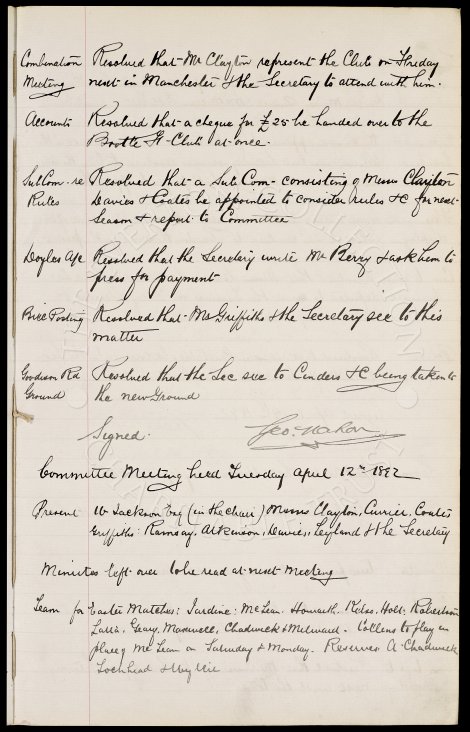 Combination Resolved that Mr Clayton represent the Club on Friday
Meeting next in Manchester & the Secretary to attend with him.
Accounts Resolved that a cheque for £25 be handed over to the
Bootle F. Club at once.
Sub Com. re Resolved that a Sub Com- consisting of Messrs Clayton
Rules Davies & Coates be appointed to consider rules &c for next
Season & report to Committee
Doyles A/c Resolved that the Secretary write Mr Berry & ask him to
press for payment
Price Posting Resolved that Mr Griffiths & the Secretary see to this
matter
Goodison Rd Resolved that the Sec see to Cinders &c being taken to
Ground the new Ground
Signed. Geo. Mahon
Committee Meeting held Tuesday April 12th 1892
Present W Jackson Esq (in the chair) Messrs Clayton, Currier, Coates
Griffiths Ramsay, Atkinson, Davies, Leyland & the Secretary
Minutes left over to be read at next Meeting
Team for Easter Matches: Jardine: McLean, Howarth, Kelso, Holt, Robertson
Latta, Geary, Maxwell, Chadwick & Milward. Collins to play in
place of McLean on Saturday & Monday. Reserves A. Chadwick
Lochhead & Wyllie